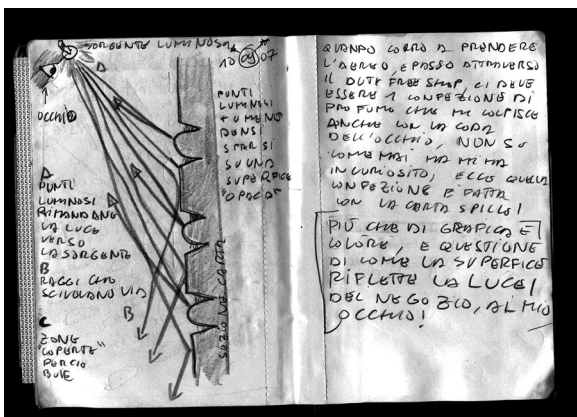 SORGENTE LUMINOSA
10 09 07
A
OCCHIO
PUNTI
LUMINOSI
+ O MENO
DENSI
SPARSI
SU UNA
SUPERFICE
"OPACA"
A
PUNTI
LUMINOSI
RIMANDANO
LA LUCE
VERSO
LA SORGENTE
B
RAGGI CHE
SCIVOLANO VIA
B
C
ZONE
"COPERTE"
PERCIÒ
BUIE
SEZIONE CARTA
QUANDO CORRO A PRENDERE
L'AEREO, E PASSO ATTRAVERSO
IL DUTY FREE SHOP, CI DEVE
ESSERE 1 CONFEZIONE DI
PROFUMO CHE MI COLPISCE
ANCHE CON LA CODA
DELL'OCCHIO, NON SO
COME MAI MA MI HA
INCURIOSITO, ECCO QUELLA
CONFEZIONE È FATTA
CON LA CARTA SPILLO!
PIÙ CHE DI GRAFICA E
COLORE, È QUESTIONE
DI COME LA SUPERFICE
RIFLETTE LA LUCE
DEL NEGOZIO, AL MIO
OCCHIO!